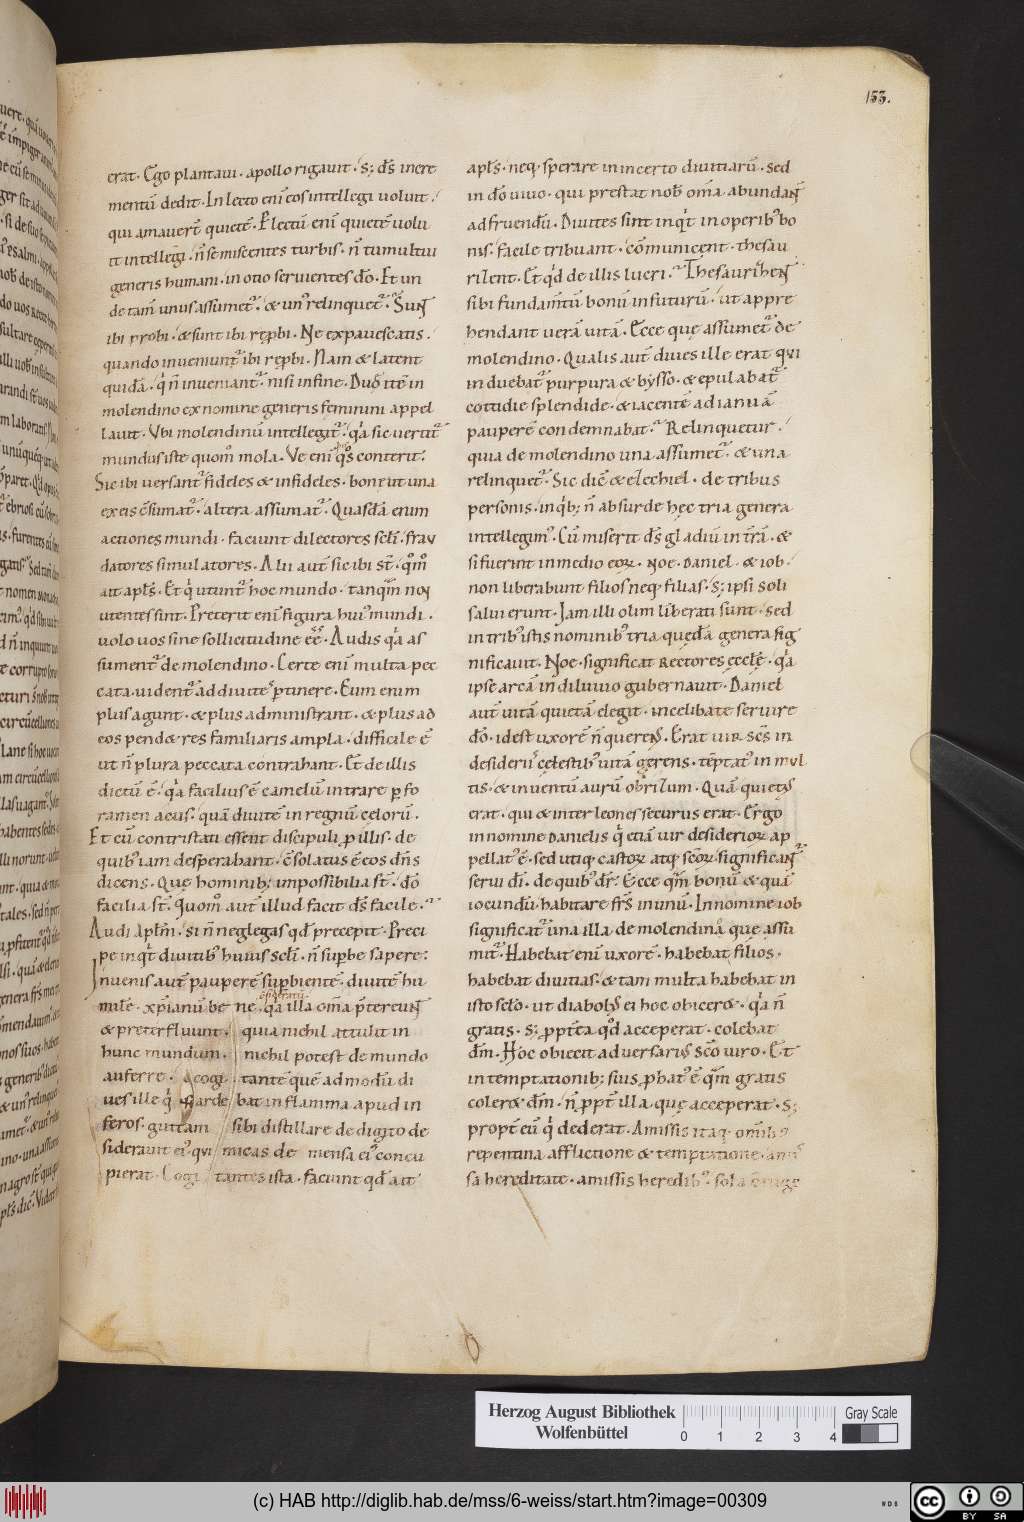 153.
erat. Ego plantavi. apollo rigavit. S; d̄s incre
mentū dedit. In lecto enī eos intellegi voluit.
qui amaverт̄ quietē. Electū enī quietē volu
it intellegi. n̄ se miscentes turbis. n̄ tumultui
generis humani. in otio servientes dō. Et un
de tam̄ unus assumet̄. & un' relinquet̄. Sun̄
ibi probi. & sunt ibi rep̱bi. Ne expavescatis.
quando inveniunt̄ ibi rep̱bi. Nam & latent
quidā. q̇ n̄ inveniant̄. nisi in fine. Duę itē in
molendino ex nomine generis feminini appel
lavit. Ubi molendinū intellegit̄. q̇a sic vertit̄
mundus iste quom̊ mola. Ve enī q̊s conterit.
Sic ibi versant̄ fideles & infideles. bon' ut una
ex eis c̄sumat̄. altera assumat̄. Quasdā enim
actiones mundi. faciunt dilectores sc̄li. frau
datores simulatores. Alii aut̄ sic ibi st̄. q̊m̊
ait apl̄s. Et q̇ utunt̄ hoc mundo. tanqm̄ non
utentes sint. Preterit enī figura hui' mundi.
volo vos sine sollicitudine ee̅. Audis q̇a as
sument̄ de molendino. Certe enī multa pec
cata. vident̄ ad divite' ꝑtinere. Eum enim
plus agunt. & plus administrant. & plus ad
eos pend& res familiaris ampla. difficile ē
ut n̄ plura peccata contrahant. Et de illis
dictū ē. q̇a facilius ē camelū intrare ꝑ fo
ramen acus. quā divitē in regnū celorū.
Et cū contristati essent discipuli ꝓ illis. de
quib' iam desperabant. c̄solatus ē eos dn̄s
dicens. Quę hominib; impossibilia st̄. dō
facilia st̄. Quom̊ aut̄ illud facit d̄s facile.
Audi apl̄m. si n̄ neglegas qd̄ precepit. Preci
pe inq̇t divitib' huius sc̄li. n̄ suꝑbe sapere:
Invenis aut̄ pauperē suꝑbientē. divitē hu
milē. xp̄ianū bene sperantē. q̇a illa om̄a p̄tereun̄
& preterfluunt. quia nichil attulit in
hunc mundum. nichil potest de mundo
auferre. Cogitante que admodū di
ves ille q̇ ardebat in flamma apud in
feros. guttam sibi distillare de digito de
sideravit ei'. qui micas de mensa ei' concu
pierat. Cogitantes ista. faciunt qd̄ ait
apl̄s. neq; sperare in incerto divitiarū. sed
in dō vivo. qui prestat nob̄ om̄a abundan̄
ad fruendū. Divites sint inq̇t in operib' bo
nis. facile tribuant. cōmunicent. thesau
rizent. Et q̇d de illis lucri. Thesaurizen̄
sibi fundam̄tū bonū in futurū. ut appre
hendant verā vitā. Ecce quę assumet̄ de
molendino. Qualis aut̄ dives ille erat qui
induebat̄ purpura & bysso. & epulabat̄
cottidie splendide. & iacentē ad ianuā
pauperē condemnabat. Relinquetur.
quia de molendino una assumet̄. & una
relinquet̄. Sic dic̄ & ezechiel. de tribus
personis. in q̇b; n̄ absurde hęc tria genera
intellegim'. Cū miserit d̄s gladiū in t̄rā. &
si fuerint in medio eoꝝ. Noe. Daniel. & iob.
non liberabunt filios neq; filias. S; ipsi soli
salvi erunt. Jam illi olim liberati sunt. sed
in trib' istis nominib' tria quędā genera sig
nificavit. Noe. significat rectores ęccl̄ę. q̇a
ipse arcā in diluvio gubernavit. Daniel
aut̄ vitā quietā elegit. in celibate servire
dō. id est uxorē n̄ querens. Erat vir sc̄s in
desiderii' cęlestib' vitā gerens. tēptat' in mul
tis. & inventū aurū obrizum. Quā quiet'
erat. qui & inter leones securus erat. Ergo
in nomine Danielis q̇ etiā vir desiderioꝝ ap
pellat' ē. sed utiq; castoꝝ atq; sc̄oꝝ. significan̄
servi dī. de quib' dr̄. Ecce qm̄ bonū & quā
iocundū. habitare fr̄s in unū. In nomine iob
significat̄ una illa. de molendino que assu
mit̄. Habebat enī uxorē. habebat filios.
habebat divitias. & tam multa habebat in
isto sc̄lo. ut diabol' ei hoc obicer&. q̇a n̄
gratis. S; ꝓpt̄ea q̊d acceperat. colebat
dm̄. Hoc obiecit adversari' sc̄o viro. Et
in temptationib; suis ꝓbat' ē qm̄ gratis
coler& dm̄. n̄ ꝓpt̄ illa quę acceperat. S;
propt̄ eū q̇ dederat. Amissis itaq; omib'
repentina afflictione & temptatione. amis
sa hereditate. amissis heredib'. sola
Herzog August Bibliothek
Wolfenbüttel
0 1 2 3 4
Gray Scale
(c) HAB http://diglib.hab.de/mss/6-weiss/start.htm?image=00309
WDB
cc BY SA